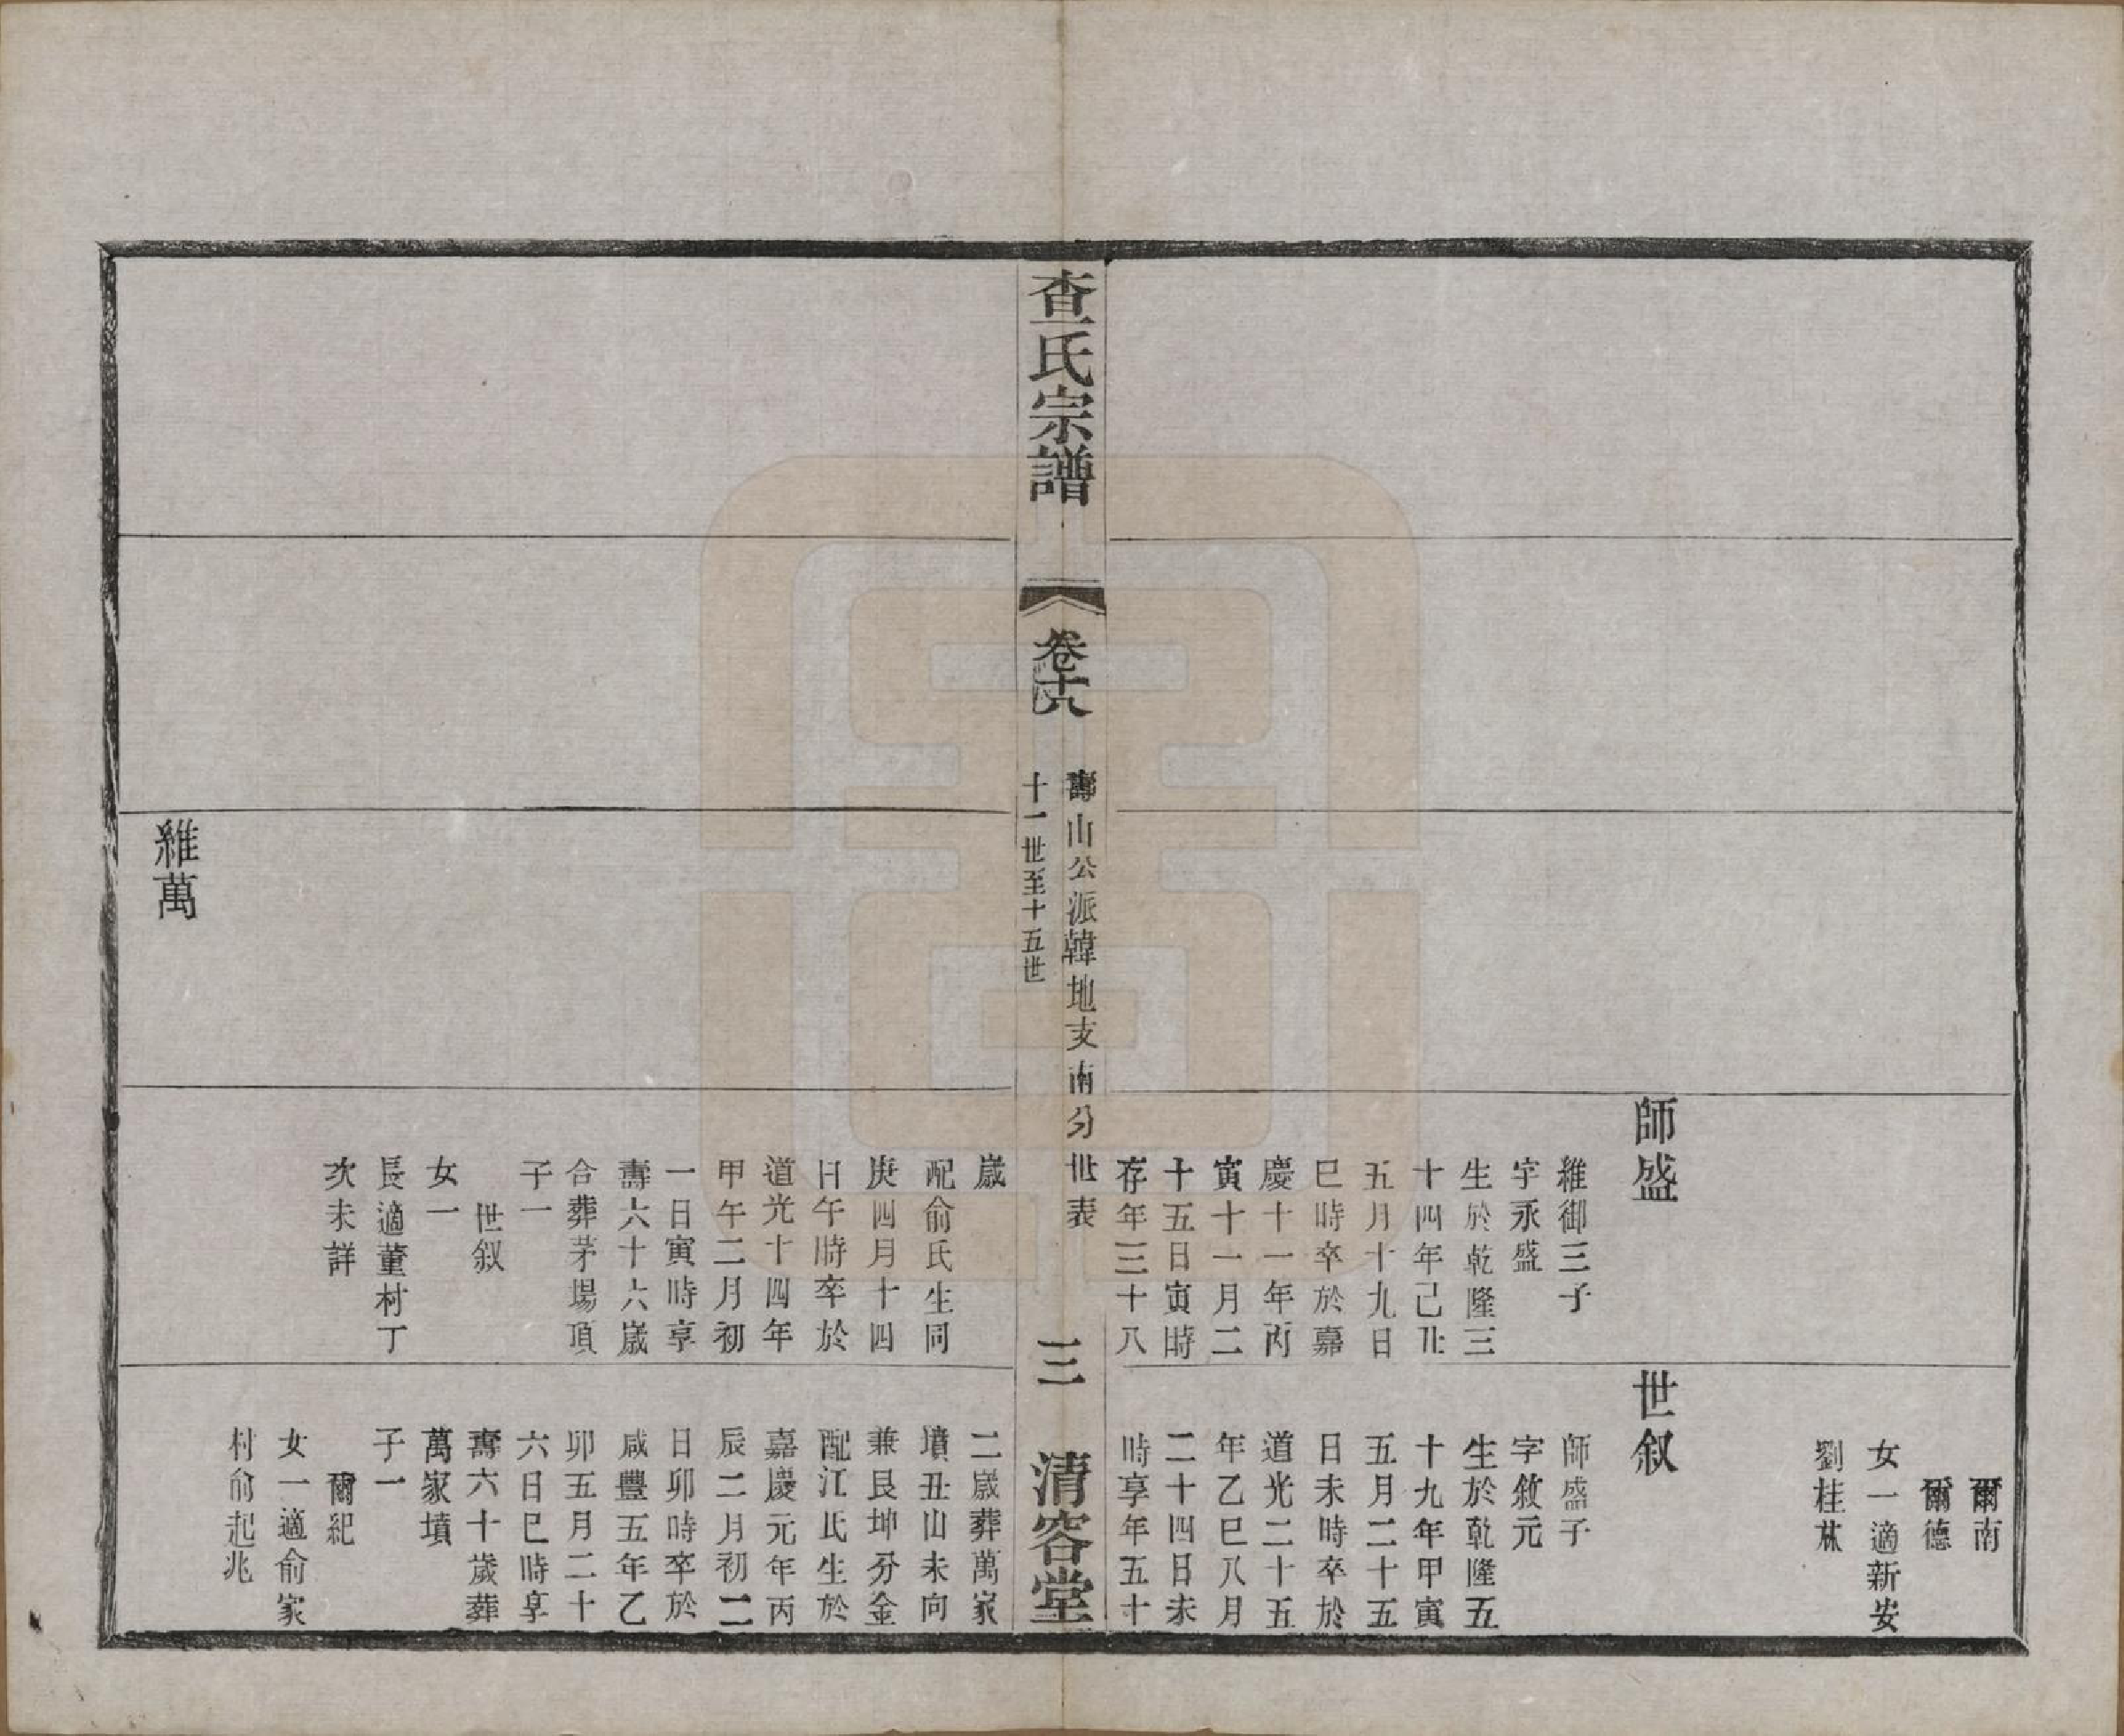 爾南
爾德
女一適新安
劉桂林
師盛
維御三子
字承盛
生於乾隆三
十四年己丑
五月十九日
巳時卒於嘉
慶十一年丙
寅十一月二
十五日寅時
存年三十八
歲
配俞氏生同
庚四月十四
日午時卒於
道光十四年
甲午二月初
一日寅時享
壽六十六歲
合葬茅場頂
子一
世叙
女一
長適董村丁
次未詳
世叙
師盛子
字敘元
生於乾隆五
十九年甲寅
五月二十五
日未時卒於
道光二十五
年乙巳八月
二十四日未
時享年五十
二歲葬萬家
墳丑山未向
兼艮坤分金
配江氏生於
嘉慶元年丙
辰二月初二
日卯時卒於
咸豐五年乙
卯五月二十
六日巳時享
壽六十歲葬
萬家墳
子一
爾紀
女一適俞家
村俞起兆
維萬
查氏宗譜
卷十八
壽山公派韓地支南分世表
十一世至十五世
三
清容堂